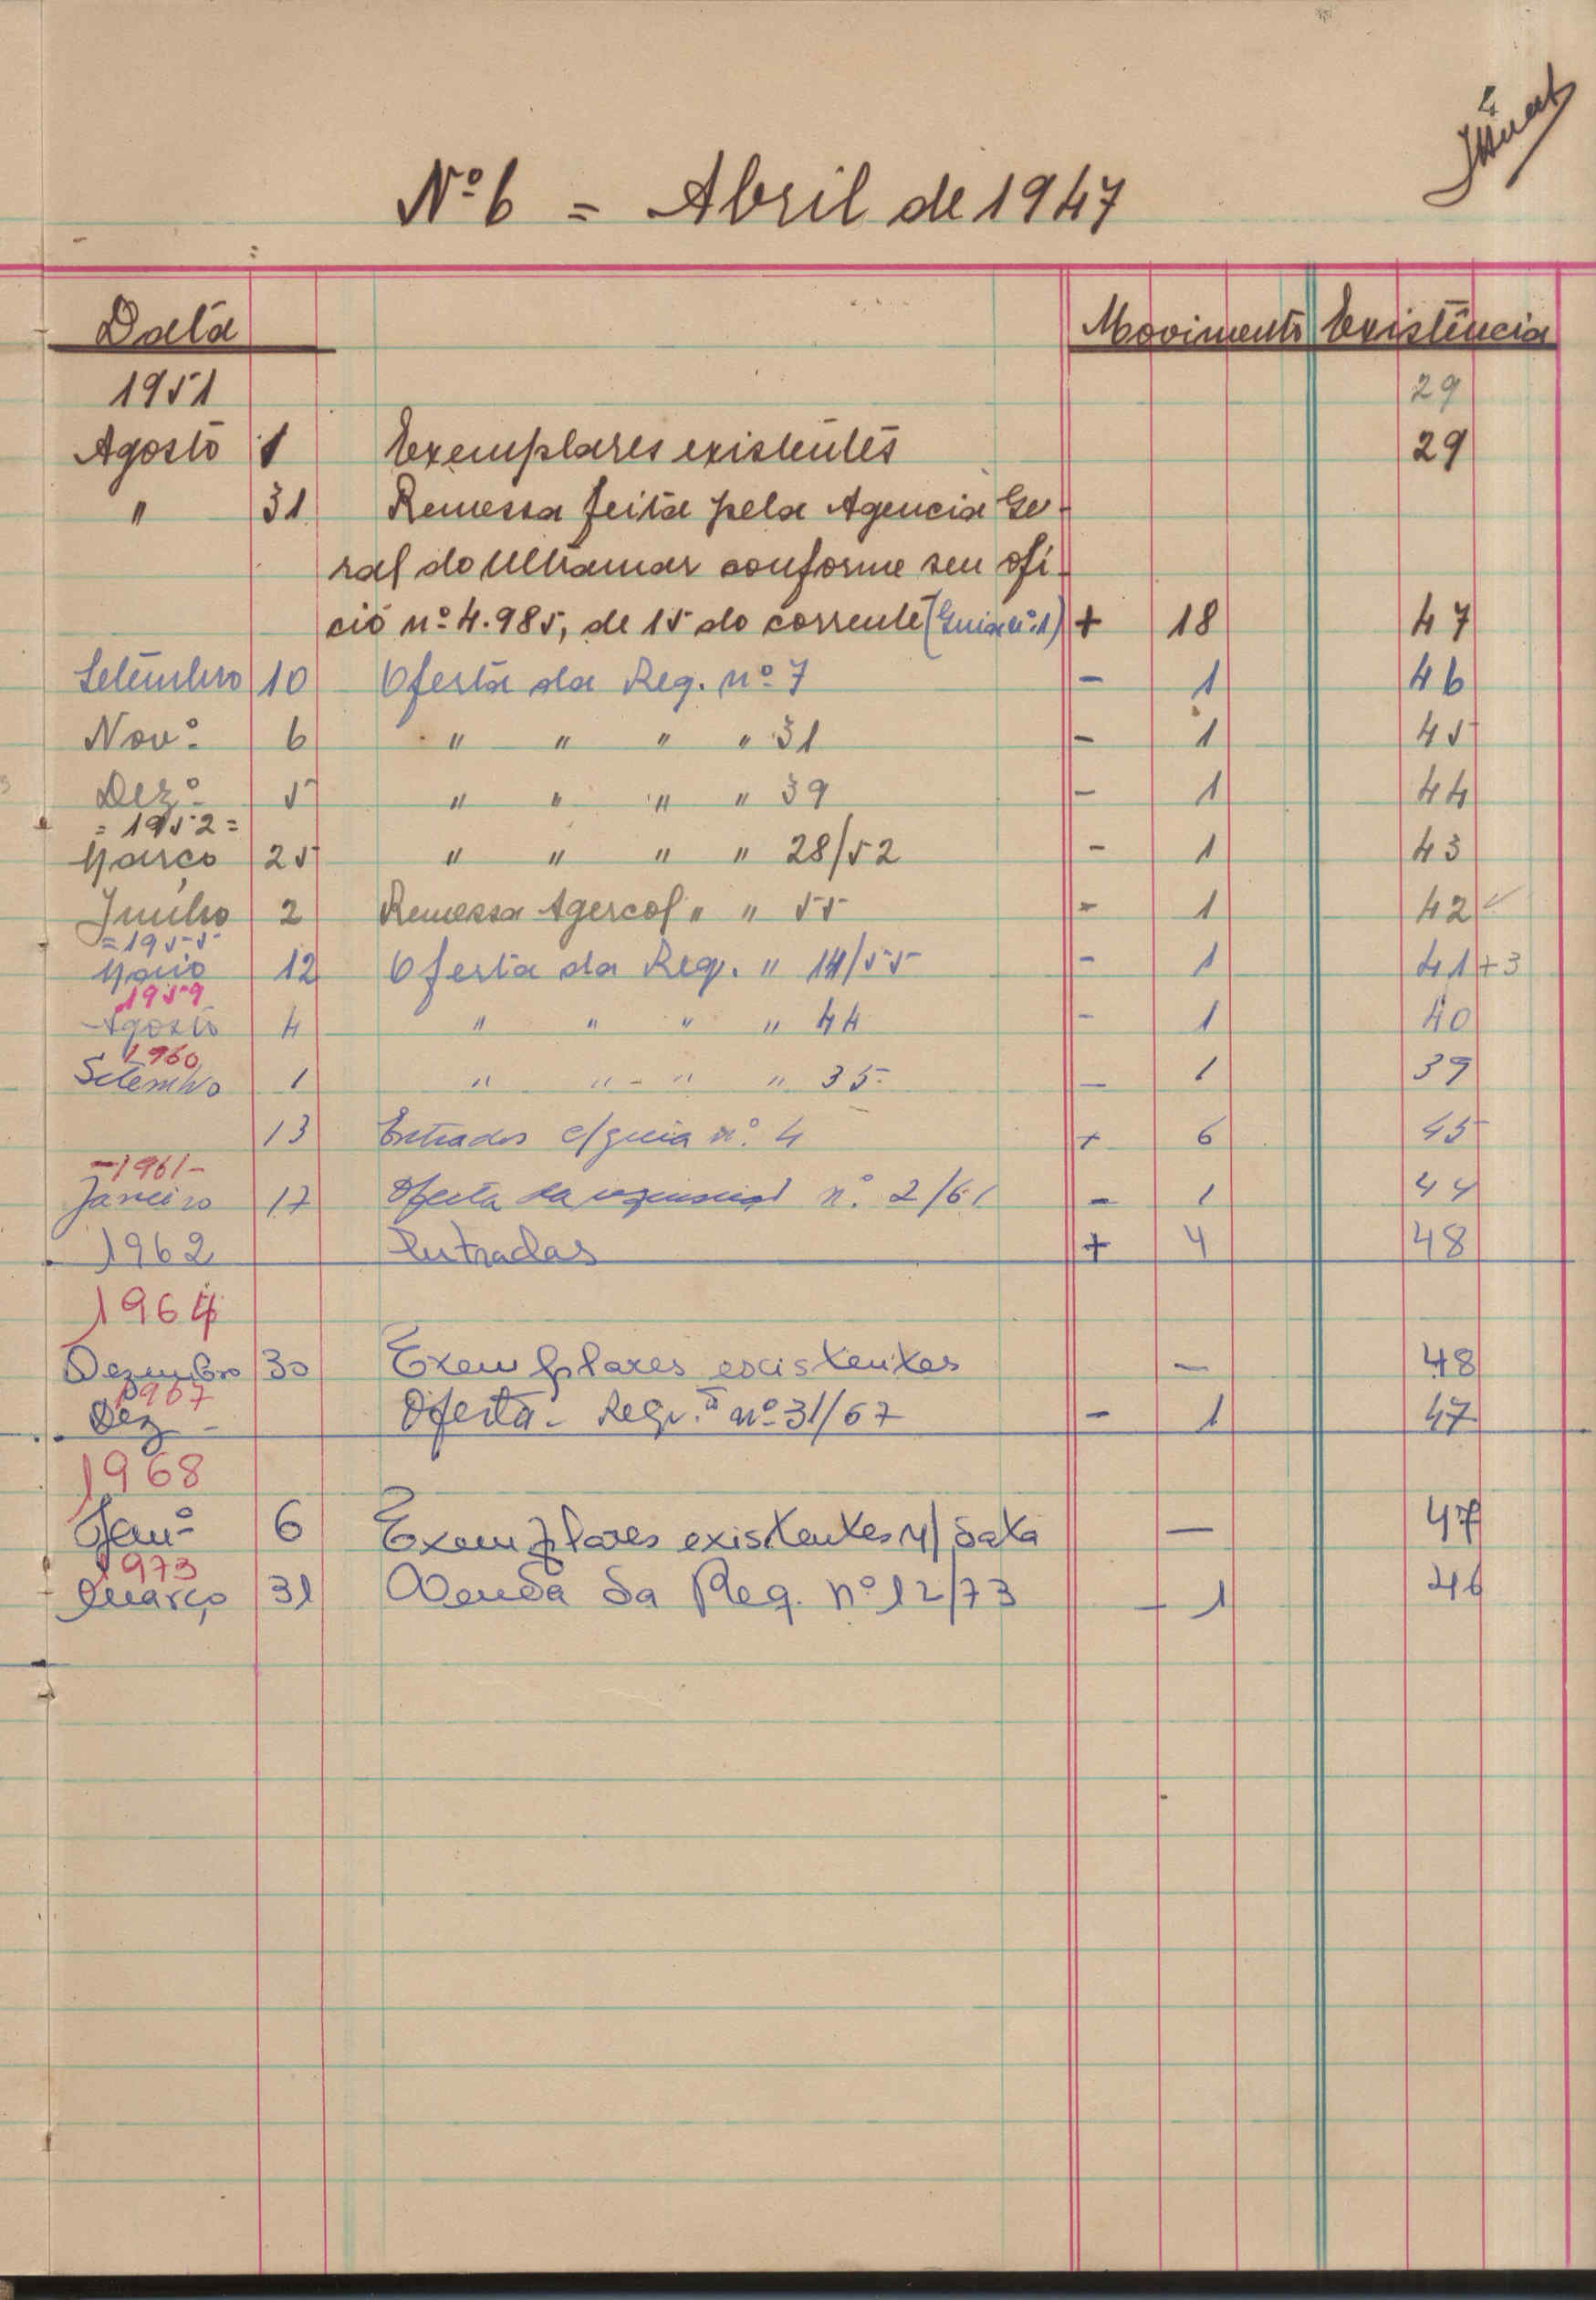 4
Nº 6 = Abril de 1947
Data Movimento Existência
1951 29
Agosto 1 Exemplares existentes 29
" 31 Remessa feita pela Agencia Ge-
ral do Ultramar conforme seu ofi-
cio nº 4.985, de 15 do corrente (Guia nº 1) + 18 47
Setembro 10 Oferta da Req. nº 7 - 1 46
Novº 6 " " " " 31 - 1 45
Dezº 5 " " " " 39 - 1 44
= 1952 =
Março 25 " " " " 28/52 - 1 43
Junho 2 Remessa Agercol " " 55 - 1 42
= 1955
Maio 12 Oferta da Req. " 14/55 - 1 41 + 3
1959
Agosto 4 " " " " 44 - 1 40
1960
Setembro 1 " " - " " 35 - 1 39
13 Entrados c/guia nº 4 + 6 45
- 1961 -
Janeiro 17 Oferta da requisição nº 2/61 - 1 44
1962 Entradas + 4 48
1964
Dezembro 30 Exemplares existentes - 48
1967
Dez - Oferta - Reqª nº 31/67 - 1 47
1968
Janº 6 Exemplares existentes n/data - 47
1973
Março 31 Venda da Req. nº 12/73 - 1 46